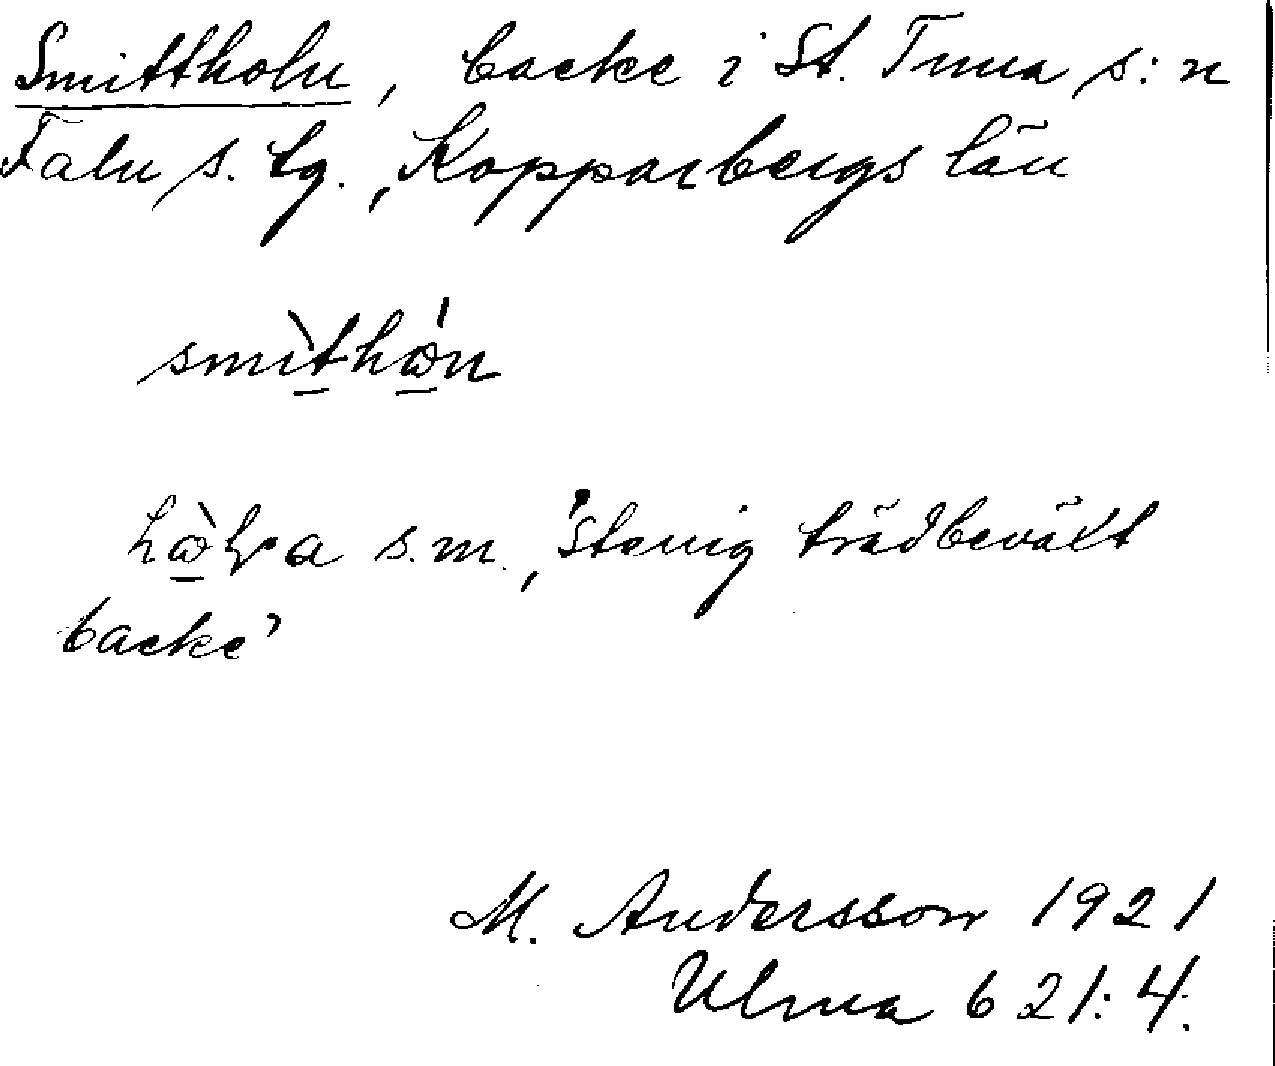 Smittholn, backe i St. Tuna s:n
Falu s. tg., Kopparbergs län
smìthɷ́n
s.m., 'stenig trädbeväxt
backe'
M. Andersson 1921
Ulma 621:4.